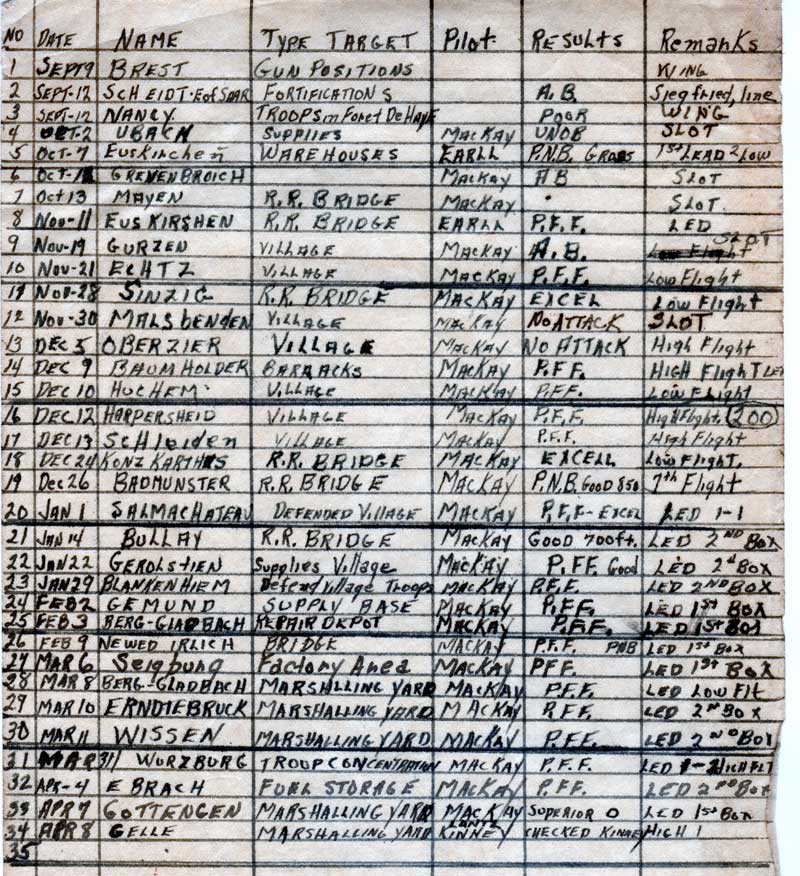 NO DATE NAME TYPE TARGET Pilot RESULTS Remarks
1 SEPT 9 BREST GUN POSITIONS WING
2 SEPT-12 SCHEIDT-E of SAAR FORTIFICATIONS A.B. Siegfried, line
3 SEPT-12 NANCY TROOPS in Foret De HAYE POOR WING
4 OCT-2 UBACH SUPPLIES MACKAY UNOB SLOT
5 Oct-7 Euskirchen WAREHOUSES EARLL P.N.B. Gross 1st LEAD 2 Low
6 Oct- GREVENBROICH MACKAY AB SLOT
7 Oct 13 MAYEN R.R. BRIDGE MACKAY SLOT.
8 Nov-11 EUSKIRSHEN R.R. BRIDGE EARLL P.F.F. LED
9 Nov-19 GURZEN VILLAGE MACKAY A.B. SLOT
10 Nov-21 ECHTZ VILLAGE MACKAY P.F.F. Low Flight
11 Nov-28 SINZIG R.R. BRIDGE MACKAY EXCEL Low Flight
12 Nov-30 MALSbENDEN VILLAGE MACKAY No ATTACK SLOT
13 DEC 5 OBERZIER VILLAGE MACKAY NO ATTACK High Flight
14 DEC 9 BAUMHOLDER BARRACKS MACKAY P.F.F. HIGH FLIGHT
15 DEC 10 HUCHEM VILLAGE MACKAY P.F.F. Low Flight
16 DEC 12 HARPERSHEID VILLAGE MACKAY P.F.F. High Flight. 200
17 DEC 13 Schleiden VILLAGE MACKAY P.F.F. High Flight
18 DEC 24 KONZ KARTHUS R.R. BRIDGE MACKAY EXCELL Low Flight.
19 Dec 26 BADMUNSTER R.R. BRIDGE MACKAY P.N.B. GOOD 850 7th Flight
20 JAN 1 SALMACHATEAU DEFENDED VILLAGE MACKAY P.F.F-EXCEL LED 1-1
21 JAN 14 BULLAY R.R. BRIDGE MACKAY GOOD 700ft. LED 2ND BOX
22 JAN 22 GEROLSTIEN Supplies Village MACKAY P.FF. Good LED 2d BOX
23 JAN 29 BLANKENHIEM Defend Village Troops MACKAY P.F.F. LED 2ND BOX
24 FEB 2 GEMUND SUPPLY BASE MACKAY P.F.F. LED 1ST BOX
25 FEB 3 BERG-GLADBACH REPAIR DEPOT MACKAY P.F.F. LED 1st BOX
26 FEB 9 NEWED IRLICH BRIDGE MACKAY P.F.F. PNB LED 1st BOX
27 MAR 6 Seigburg Factory Area MACKAY PFF. LED 1ST BOX
28 MAR 8 BERG-GLADBACH MARSHALLING YARD MACKAY P.F.F. LED LOW Flt
29 MAR 10 ERNDTEBRUCK MARSHALLING YARD MACKAY P.FF. LED 2ND BOX
30 MAR 11 WISSEN MARSHALLING YARD MACKAY P.F.F. LED 2ND BOX
31 MAR 311 WURZBURG TROOP CONCENTRATION MACKAY P.F.F. LED 1-2 HIGH FLT
32 APR-4 EBRACH FUEL STORAGE MACKAY P.FF. LED 2ND BOX
33 APR 7 GOTTENGEN MARSHALLING YARD MACKAY SUPERIOR O LED 1st BOX
34 APR 8 GELLE MARSHALLING YARD LANTZ KINNEY CHECKED KINNEY HIGH 1
35